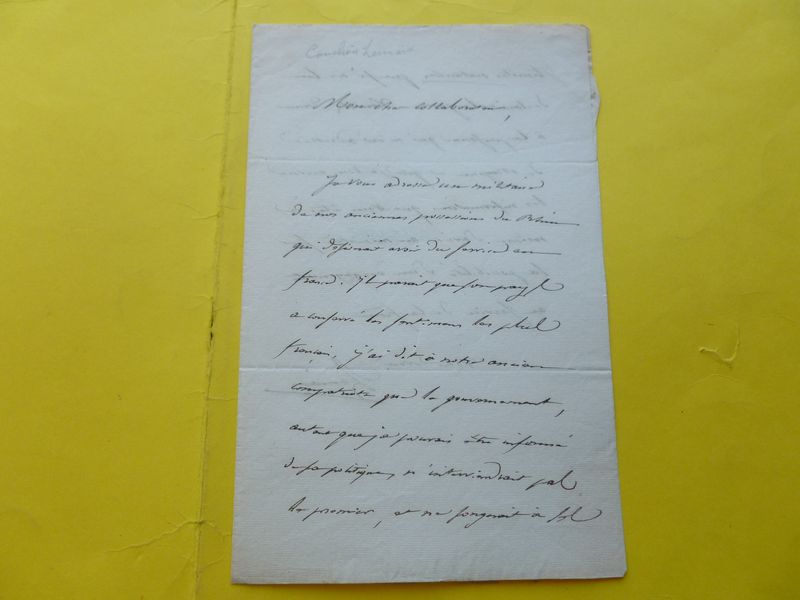 Cauchois Lemaire
Mon cher collaborateur,
Je vous adresse un militaire
de nos anciennes possessions du Rhin
qui désirerait avoir du service en
france. Il parait que son pays
a conservé les sentimens les plus
français. j'ai dit à notre ancien
compatriote que le gouvernement,
autant que je pouvais être informé
de sa politique, n'interviendrait pas
le premier, et ne songerait à